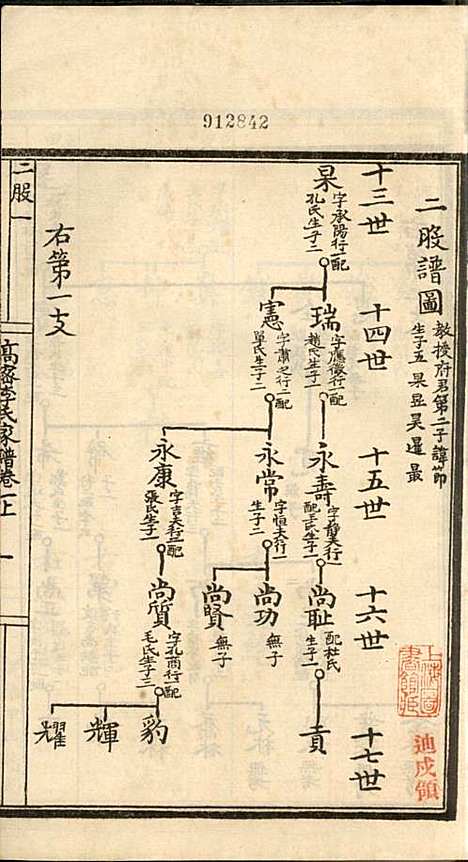 912842
二股譜圖
教授府君第二子諱節
生子五 杲昱昊暹最
十三世
十四世
十五世
十六世
十七世
杲
字承陽行一配
孔氏生子二
瑞
字應徵行一配
趙氏生子一
憲
字肅之行二配
單氏生子二
永壽
字静夫行一
配王氏生子一
永常
字恒夫行一
生子二
永康
字吉夫行二配
張氏生子一
尚耻
配杜氏
生子一
尚功
無子
尚賢
無子
尚質
字孔商行一配
毛氏生子三
貢
豹
輝
耀
右第一支
二股一
高密李氏家譜卷上
一
上海圖書館藏